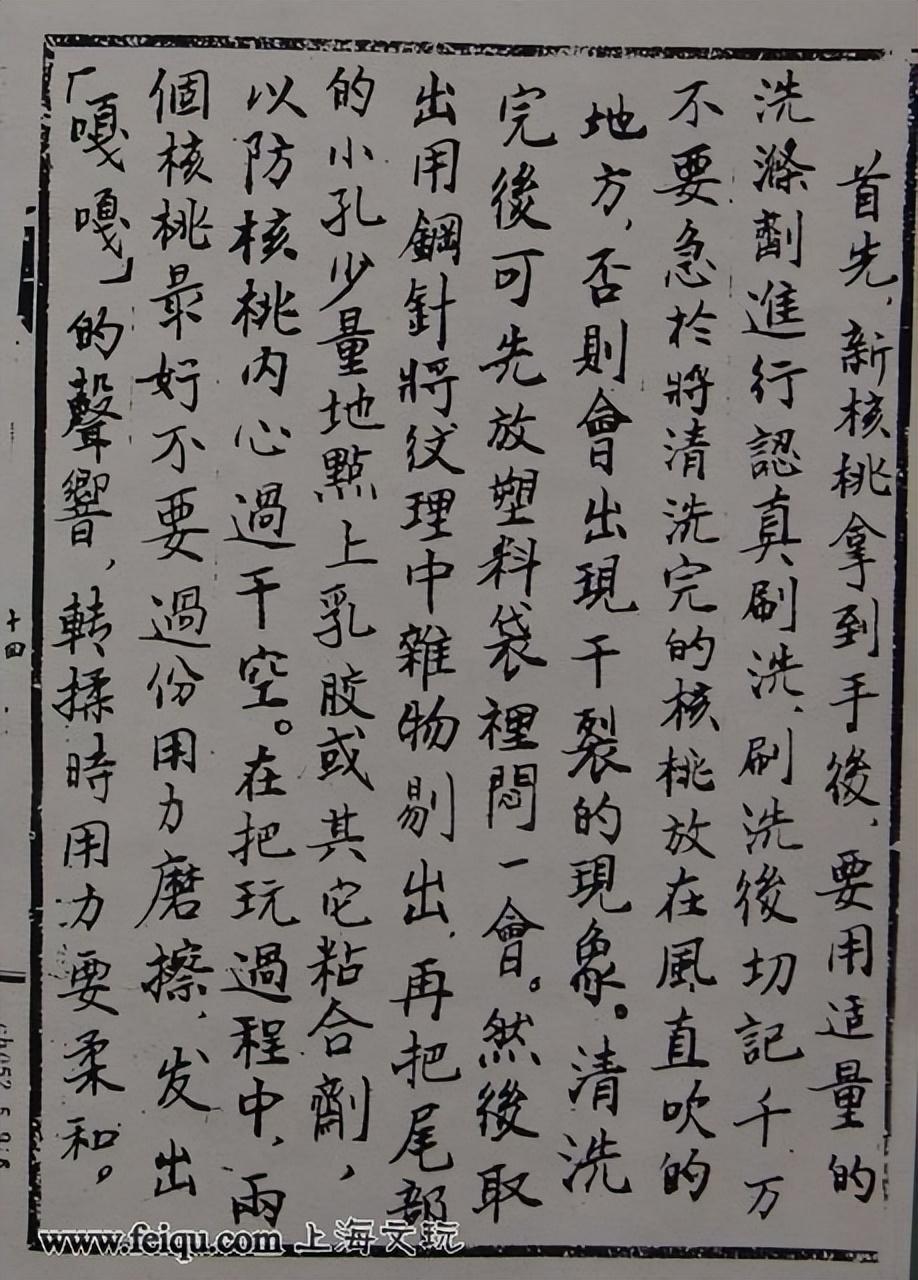 首先，新核桃拿到手後，要用适量的
洗滌劑進行認真刷洗，刷洗後切記千万
不要急於將清洗完的核桃放在風直吹的
地方，否則會出現干裂的現象。清洗
完後可先放塑料袋裡悶一會。然後取
出用鋼針將纹理中雜物剔出，再把尾部
的小孔少量地點上乳胶或其它粘合劑，
以防核桃内心過干空。在把玩過程中，兩
個核桃最好不要過份用力磨擦，发出
「嘎嘎」的聲響，转揉時用力要柔和。
十四
www.feiqu.com 上海文玩